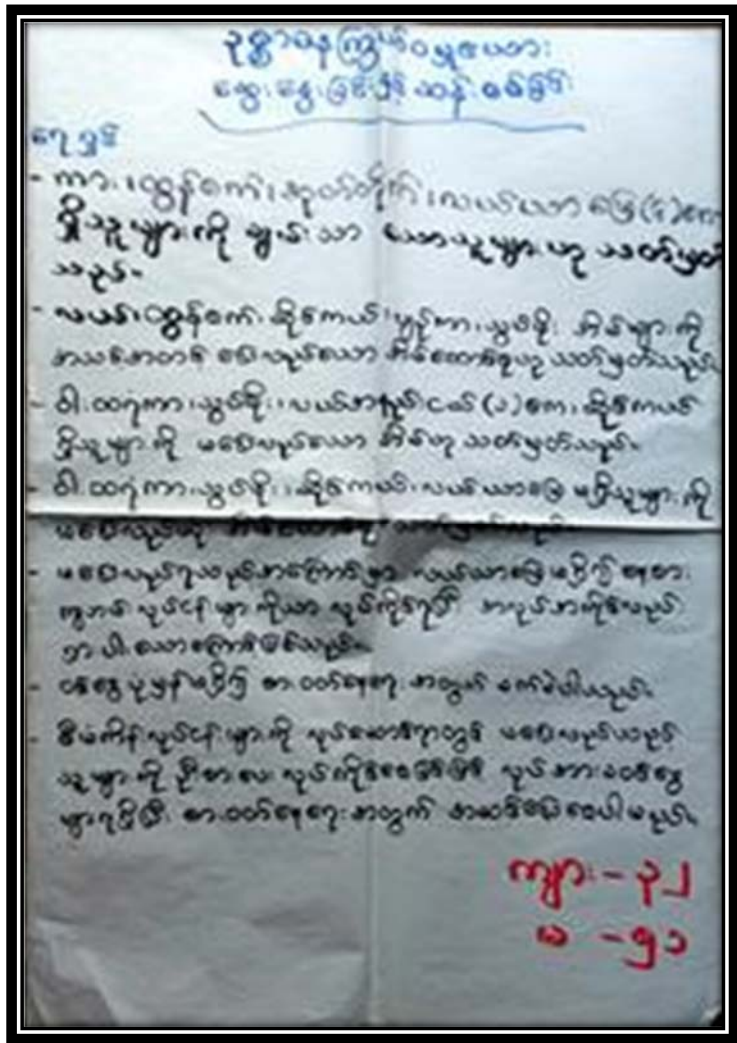 ဥစ္စာဓနကြွယ်ဝမှုဇယား
ဆွေးနွေးခြင်းနှင့် ဆန်းစစ်ခြင်း
ရေရှင်
- ကား၊ ထွန်စက်၊ အုတ်တိုက်၊ လယ်ယာမြေ (၄)ဧက
ရှိသူများကို ချမ်းသာ သောသူများဟု သတ်မှတ်
သည်။
- လယ်၊ ထွန်စက်၊ ဆိုင်ကယ်၊ ပျဉ်ကာ၊ သွပ်မိုး အိမ်များကို
အသင့်အတင့် ပြေလည်သော အိမ်ထောင်စုဟု သတ်မှတ်သည်။
- ဝါးထရံကာ၊ သွပ်မိုး၊ လယ်အနည်းငယ် (၁)ဧက၊ ဆိုင်ကယ်
ရှိသူများကို မပြေလည်သော အိမ်ဟု သတ်မှတ်သည်။
- ဝါးထရံကာ၊ သွပ်မိုး၊ ဆိုင်ကယ်၊ လယ်ယာမြေ မရှိသူများကို
- မပြေလည်ရသည့်အကြောင်းမှာ လယ်ယာမြေ မရှိ၍ နေ့စား
ကျဘမ်းလုပ်ငန်းများကိုသာ လုပ်ကိုင်ရပြီး အလုပ်အကိုင်လည်း
ရှားပါးသောကြောင့်ဖြစ်သည်။
- ဝင်ငွေ ပုံမှန်မရှိ၍ စားဝတ်နေရေး အတွက် ခက်ခဲပါသည်။
- စီမံကိန်းလုပ်ငန်းများကို လုပ်ဆောင်ရာတွင် မပြေလည်သည့်
သူများကို ဦးစားပေး လုပ်ကိုင်စေခြင်းဖြင့် လုပ်အားခဝင်ငွေ
များရရှိပြီး စားဝတ်နေရေးအတွက် အဆင်ပြေစေပါမည်။
ကျား - ၃၂
မ - ၅၁